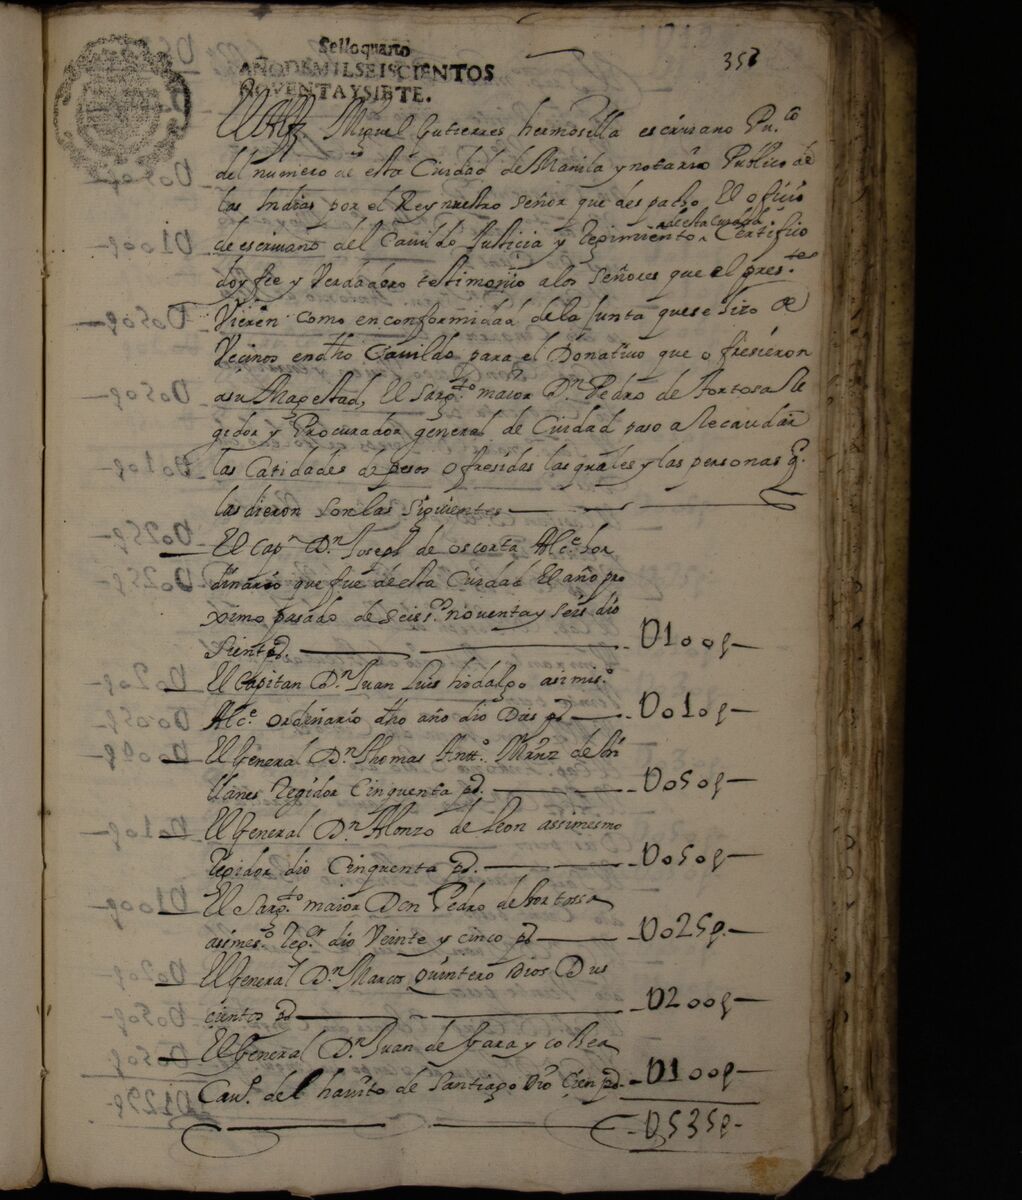 Sello quarto
357
AÑO DE MIL SEISCIENTOS
NOVENTA Y SIETE.
El Alfz Miguel Gutierres hermosilla escriuano Pu.co
del numero de esta Ciudad de Manila y notario Publico de
las Indias por el Rey nuestro Señor que despacho El oficio
de escriuano del Cauildo Justicia y Regimiento de esta ciudad Certifico
doy fee y Verdadero testimonio a los Señores que el pres.te
Vieren como en conformidad de la Junta que se hiso de
Vecinos en dho Cauildo para el Donatiuo que ofresieron
a su Magestad, El Sarg.to maior D.n Pedro de Tortosa Re
gidor y Procurador general de Ciudad paso a Recaudar
las Catidades de pesos ofresidas las quales y las personas q.
las dieron son las siguientes
El Cap.n D.n Joseph de escorta Alc.e hor
dinario que fue de esta Ciudad El año pro
ximo pasado de seis.os nouenta y seis dio
sient ps. D100p
El Capitan D.n Juan Luis hidalgo asimis.o
Alc.e ordinario dho año dio Dies ps D010p
El General D.n Thomas Antt.o Mrnz de
llanes Regidor Cinquenta ps. D050p
El General D.n Alonzo de Leon assimesmo
Regidor dio Cinquenta ps. D050p
El Sarg.to maior Don Pedro de tortossa
asimes.o Reg.or dio Veinte y cinco ps D025p.
El General D.n Marcos Quintero Dios Dus
cientos ps D200p
El General D.n Juan de Gara y
Cau.o del hauito de Santiago Dio Cien ps. D100p
D535p